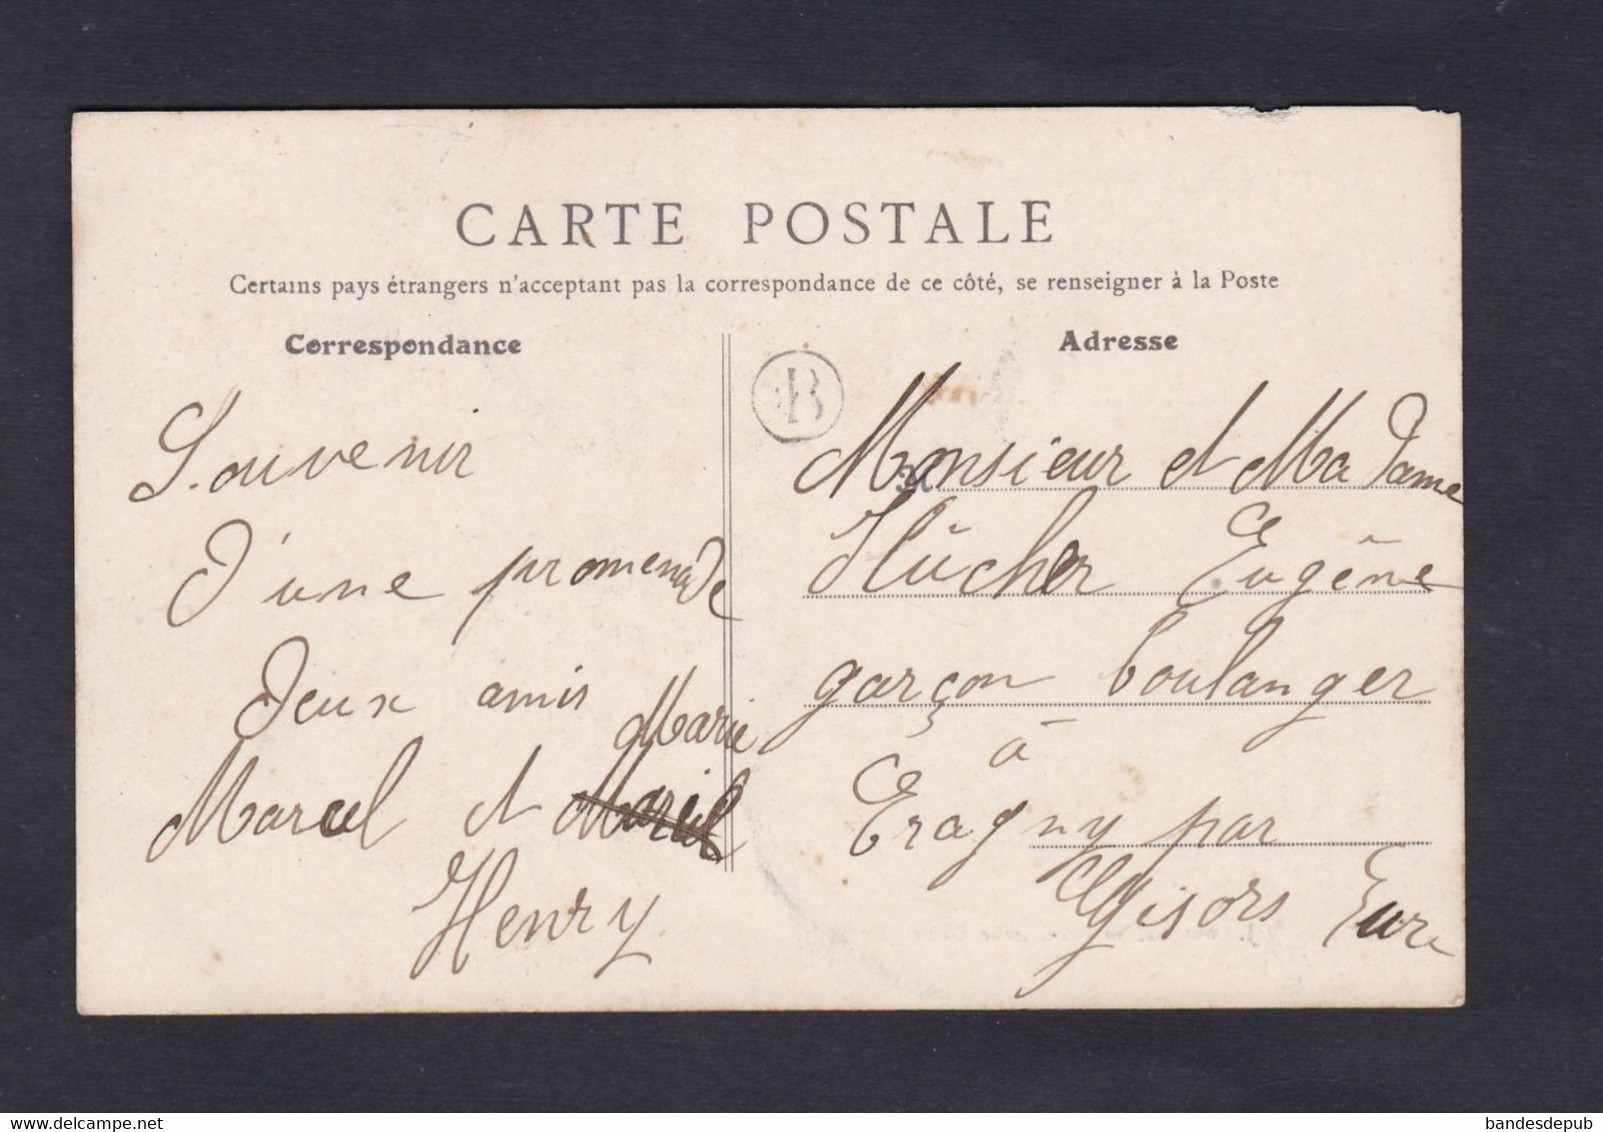 CARTE POSTALE
Certains pays étrangers n'acceptant pas la correspondance de ce côté, se renseigner à la Poste
Correspondance
Souvenir
d'une promenade
deux amis
Marie
Marcel et
Henry
Adresse
B
Monsieur et Madame
Hûcher Eugêne
garçon boulanger
à
Eragny par
Gisors Eure
delcampe.net
bandesdepub